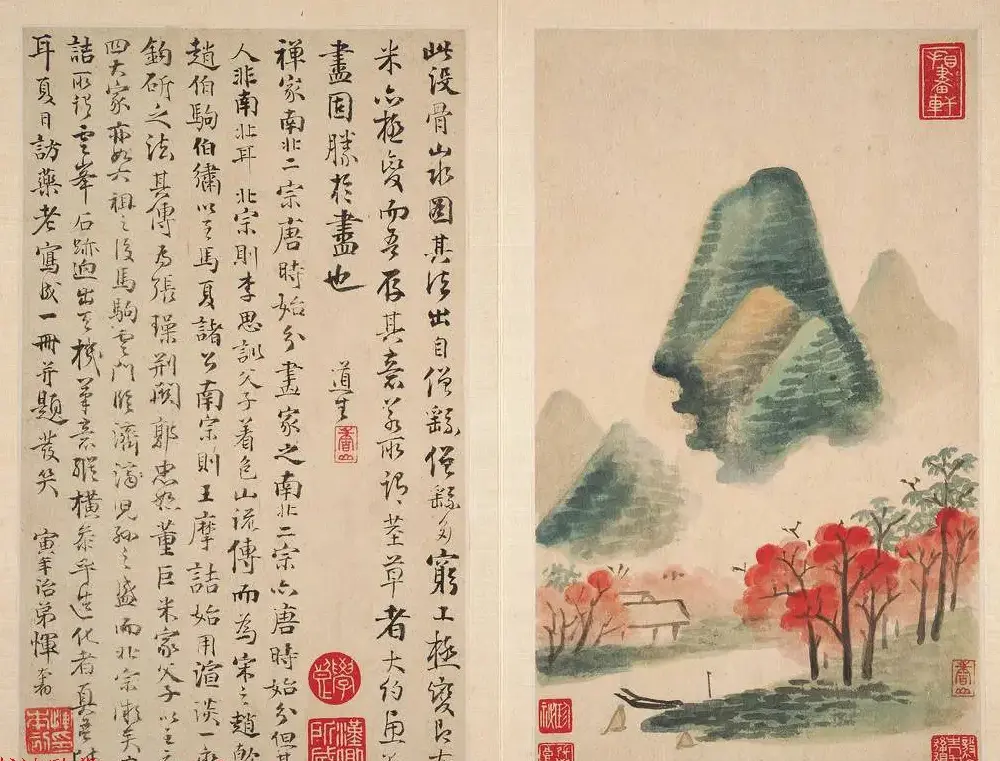 此没骨山水圖其法出自僧繇僧繇多窮工極變即
米亦極變而吾存其意若所謂茎草者大約
畫固勝於畫也
道生
香山
禪家南北二宗唐時始分畫家之南北二宗亦唐時始分但其
人非南北耳北宗則李思訓父子着色山流傳而為宋之趙幹
趙伯駒伯繡以至馬夏諸公南宗則王摩詰始用渲淡一變
鈎斫之法其傳為張璪荆關郭忠恕董巨米家父子以至元
四大家亦如六祖之後馬駒雲門臨濟濟兒孫之盛而北宗漸失
詰所謂雲峯石跡迥出天機筆意縱橫參乎造化者真無
耳夏日訪藥老寫成一冊并題發笑
寅年治弟惲
香山